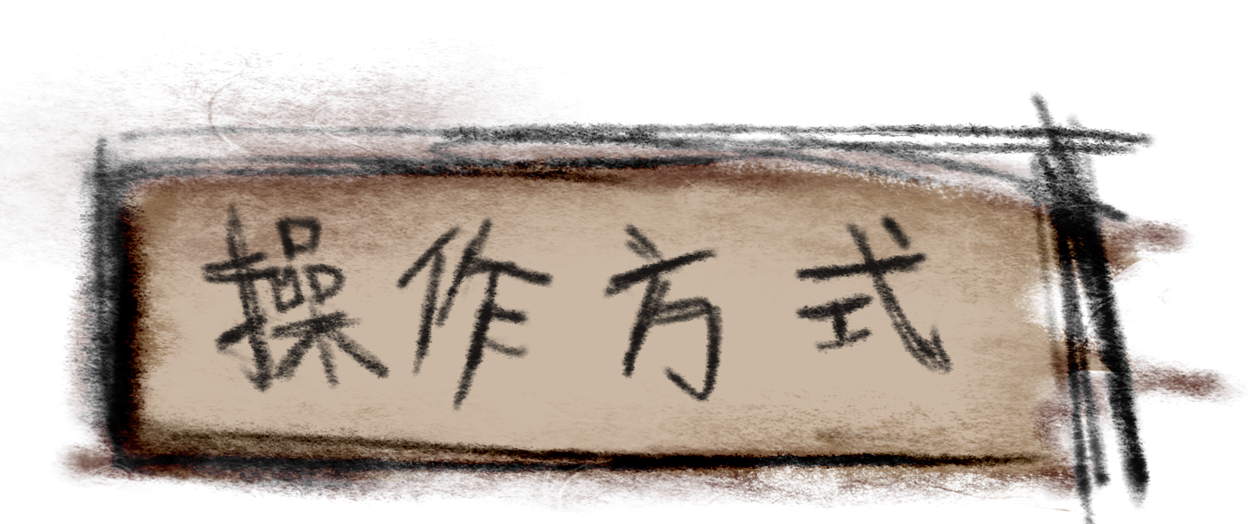 操作方式